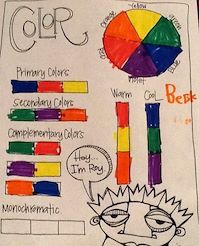 COLOR
Orange
Yellow
Green
Blue
Violet
Red
Primary Colors
Secondary Colors
Complementary Colors
Monochromatic
Warm
Cool
Hey...
I'm Roy